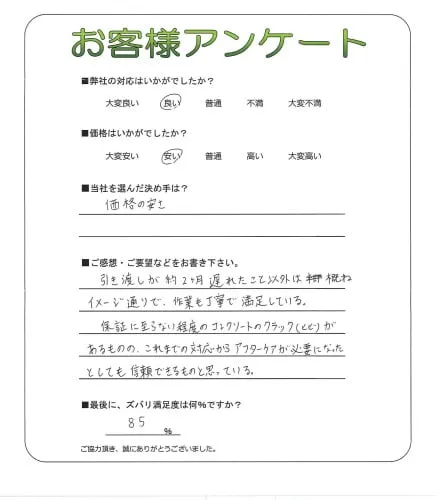 お客様アンケート
■弊社の対応はいかがでしたか？
大変良い　良い　普通　不満　大変不満
■価格はいかがでしたか？
大変安い　安い　普通　高い　大変高い
■当社を選んだ決め手は？
価格の安さ
■ご感想・ご要望などをお書き下さい。
引き渡しが約2ヶ月遅れたこと以外は概ね
イメージ通りで、作業も丁寧で満足している。
保証に至らない程度のコンクリートのクラック(ヒビ)が
あるものの、これまでの対応からアフターケアが必要になった
としても信頼できるものと思っている。
■最後に、ズバリ満足度は何%ですか？
85 %
ご協力頂き、誠にありがとうございました。